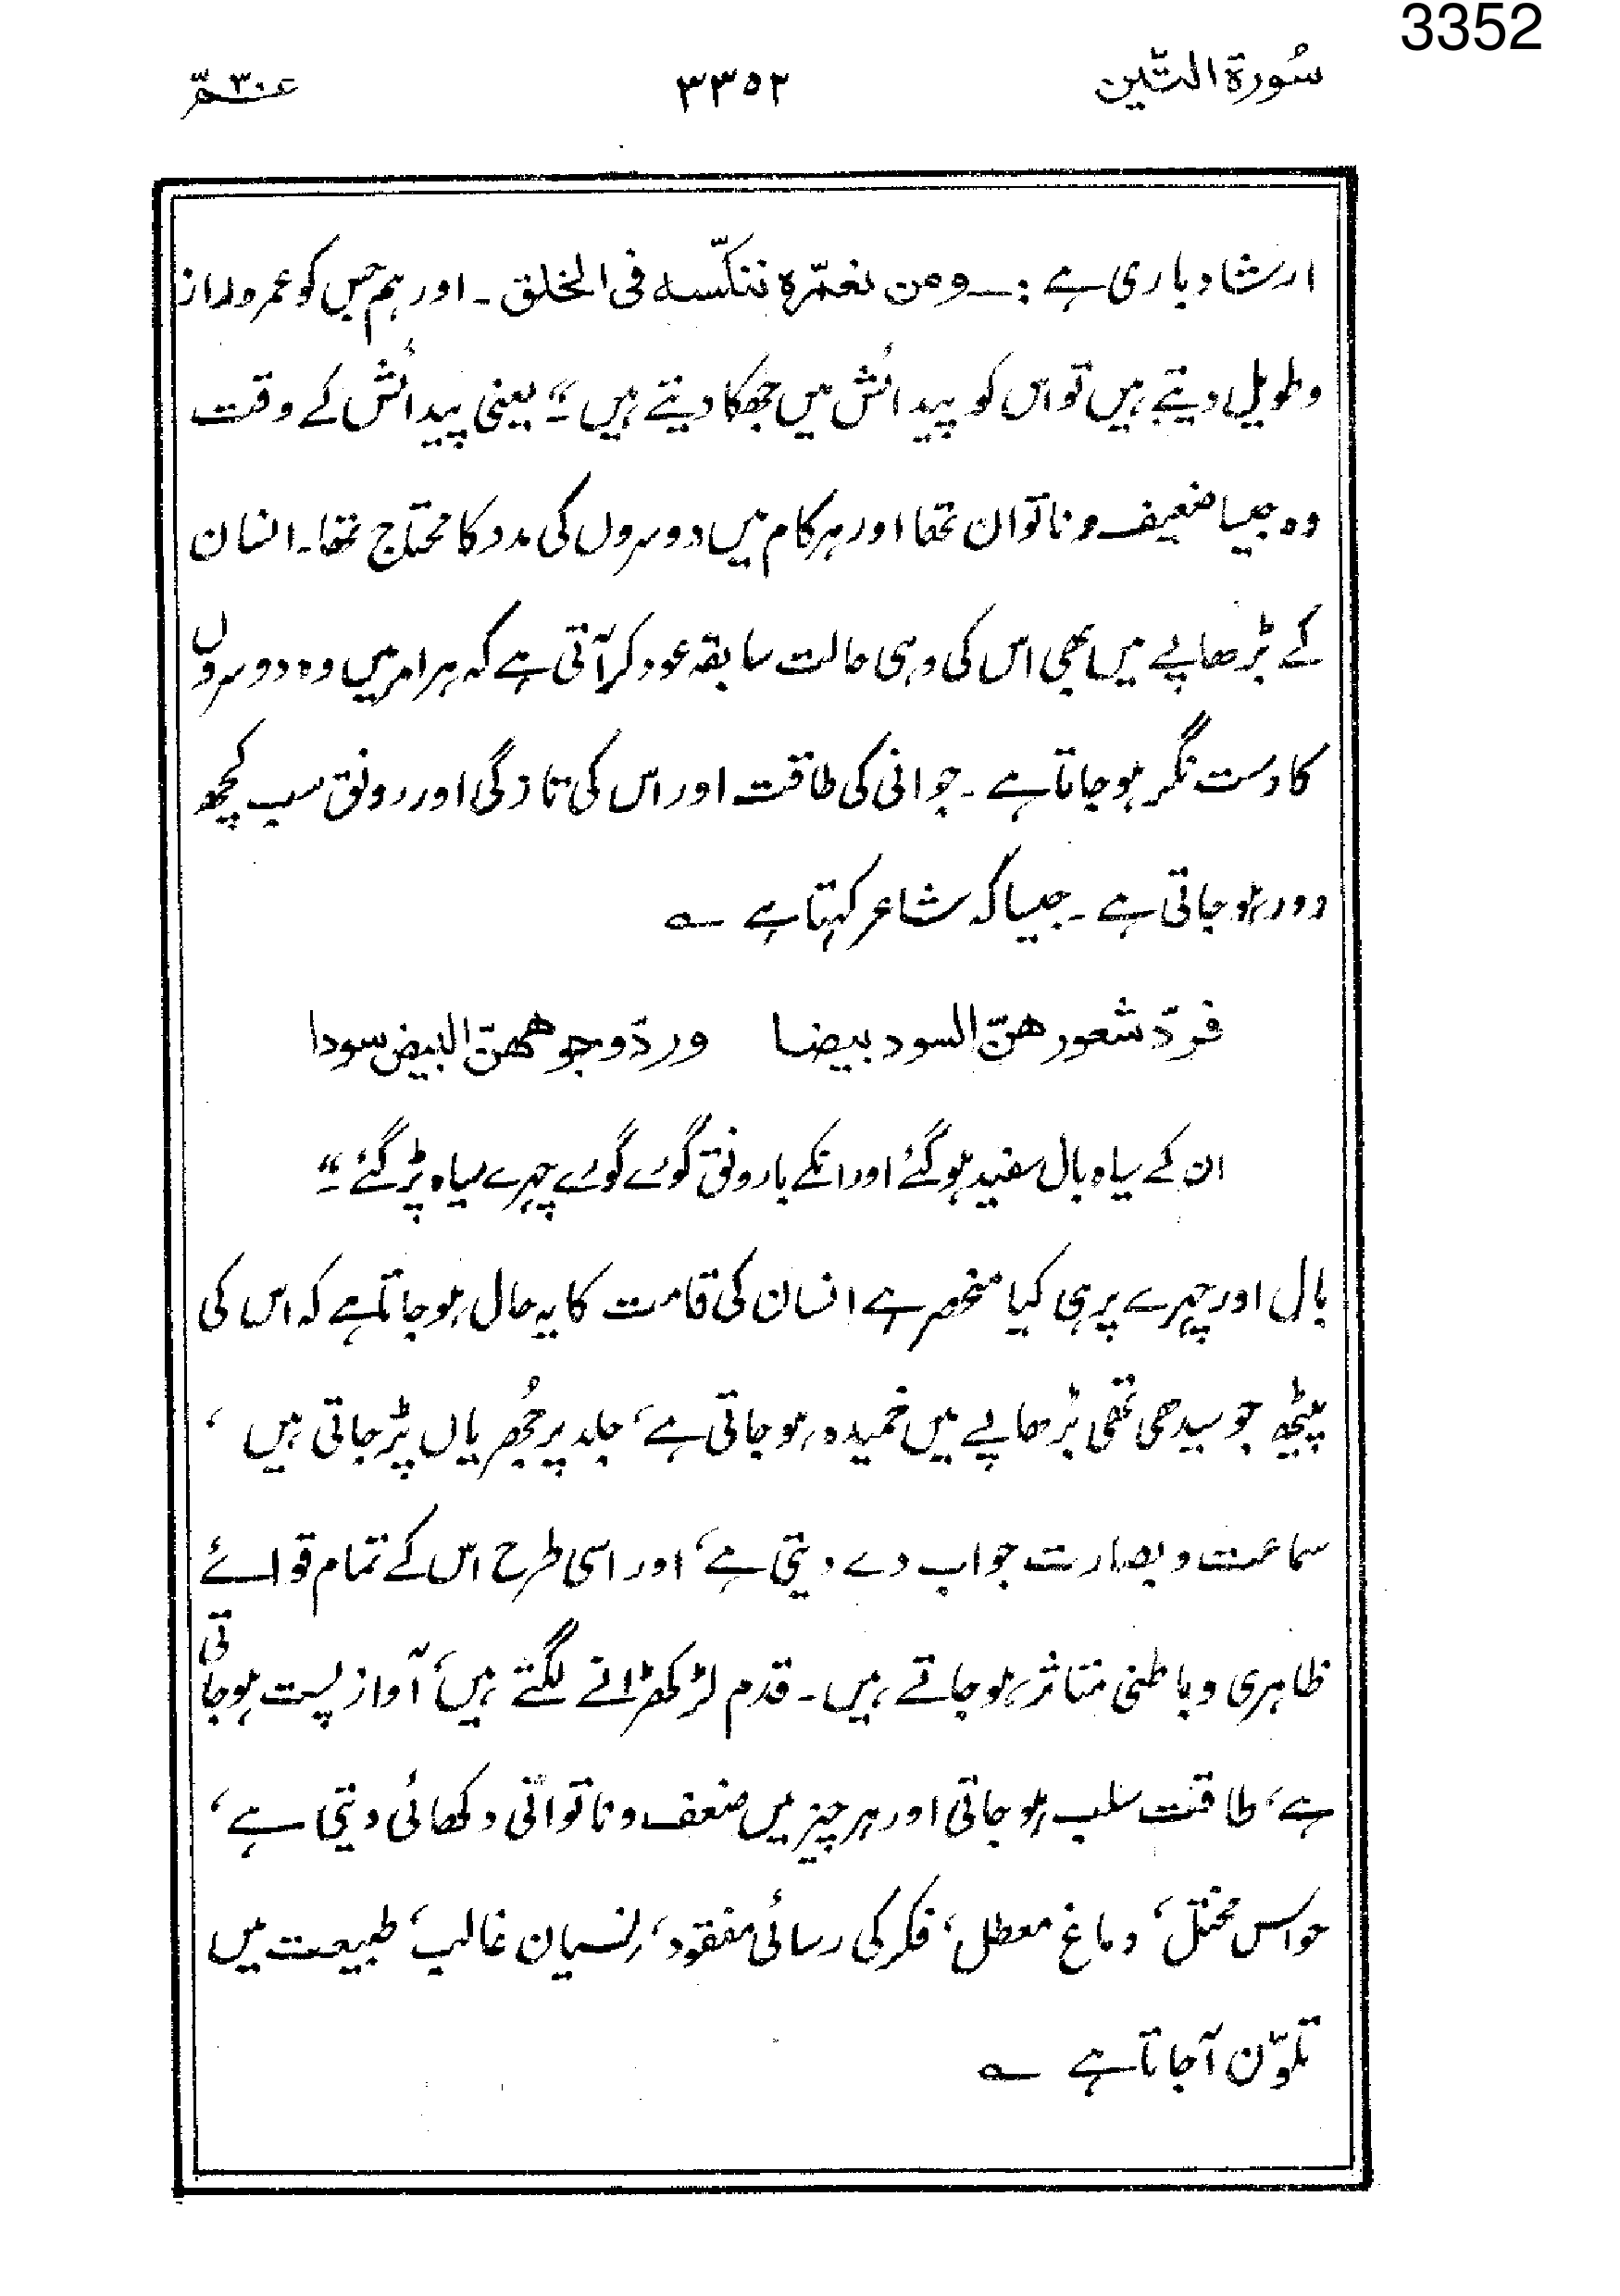 3352
سُورة التّين ۳۳۵۲ عمّ ۳۰
ارشاد باری ہے :۔ ومن نعمّرہ ننکّسه فی الخلق ۔ اور ہم جس کو عمر دراز
وطویل دیتے ہیں تو اس کو پیدائش میں جھکا دیتے ہیں ۔“ یعنی پیدائش کے وقت
وہ جیسا ضعیف و ناتوان تھا اور ہر کام میں دوسروں کی مدد کا محتاج تھا۔ انسان
کے بڑھاپے میں بھی اس کی وہی حالت سابقہ عود کر آتی ہے کہ ہر امر میں وہ دوسروں
کا دست نگر ہو جاتا ہے ۔ جوانی کی طاقت اور اس کی تازگی اور رونق سب کچھ
دور ہو جاتی ہے ۔ جیسا کہ شاعر کہتا ہے ؎
فردّ شعورھنّ السود بیضا وردّ وجوھھنّ البیض سودا
ان کے سیاہ بال سفید ہو گئے اور انکے بارونق گورے گورے چہرے سیاہ پڑ گئے ۔“
بال اور چہرے پر ہی کیا منحصر ہے انسان کی قامت کا یہ حال ہو جاتا ہے کہ اس کی
پیٹھ جو سیدھی تھی بڑھاپے میں خمیدہ ہو جاتی ہے، جلد پر جُھریاں پڑ جاتی ہیں ،
سماعت و بصارت جواب دے دیتی ہے، اور اسی طرح اس کے تمام قوائے
ظاہری و باطنی متاثر ہو جاتے ہیں ۔ قدم لڑکھڑانے لگتے ہیں، آواز پست ہو جاتی
ہے، طاقت سلب ہو جاتی اور ہر چیز میں ضعف و ناتوانی دکھائی دیتی ہے ،
حواس مختل، دماغ معطل، فکر کی رسائی مفقود، نسیان غالب، طبیعت میں
تلوّن آ جاتا ہے ؎